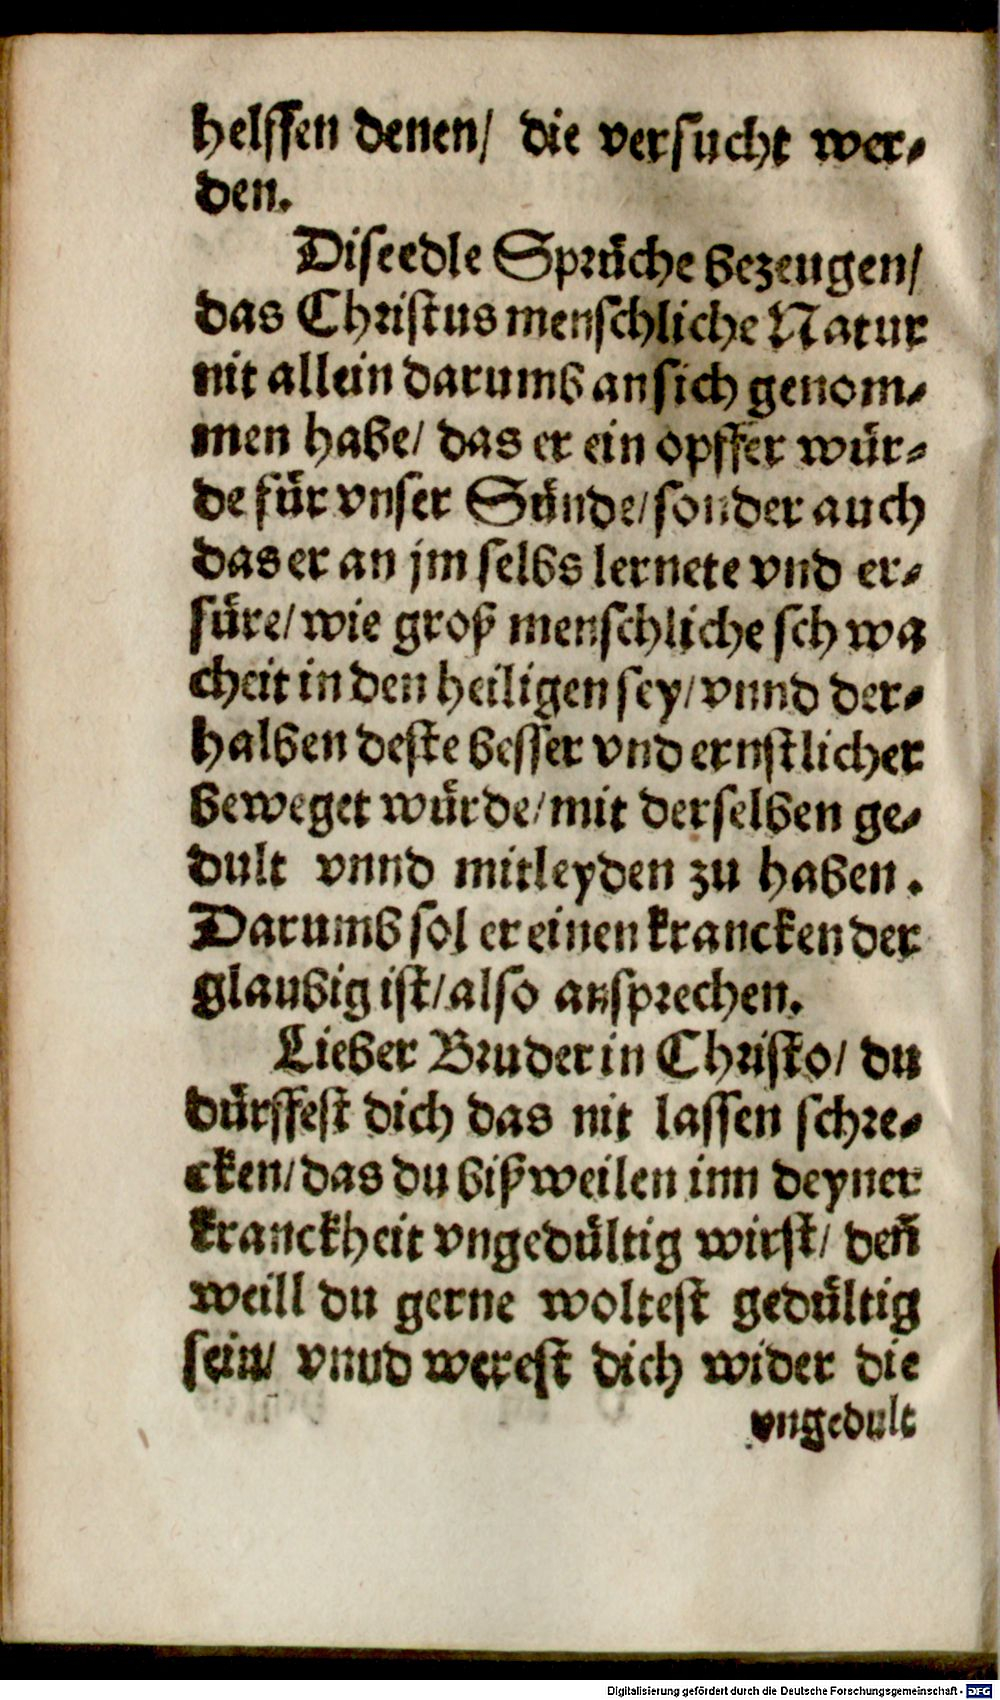 helffen denen/ die versucht wer⸗
den.
Dise edle Sprüche bezeugen/
das Christus menschliche Natur
nit allein darumb an sich genom⸗
men habe/ das er ein opffer wür⸗
de für vnser Sünde/ sonder auch
das er an jm selbs lernete vnd er⸗
füre/ wie groß menschliche schwa
cheit in den heiligen sey/ vnnd der⸗
halben deste besser vnd ernstlicher
beweget würde/ mit derselben ge⸗
dult vnnd mitleyden zu haben.
Darumb sol er einen krancken der
glaubig ist/ also ansprechen.
Lieber Bruder in Christo/ du
dürffest dich das nit lassen schre⸗
cken/ das du bißweilen inn deyner
kranckheit vngedültig wirst/ deñ
weill du gerne woltest gedültig
sein/ vnnd werest dich wider die
vngedult
Digitalisierung gefördert durch die Deutsche Forschungsgemeinschaft - DFG